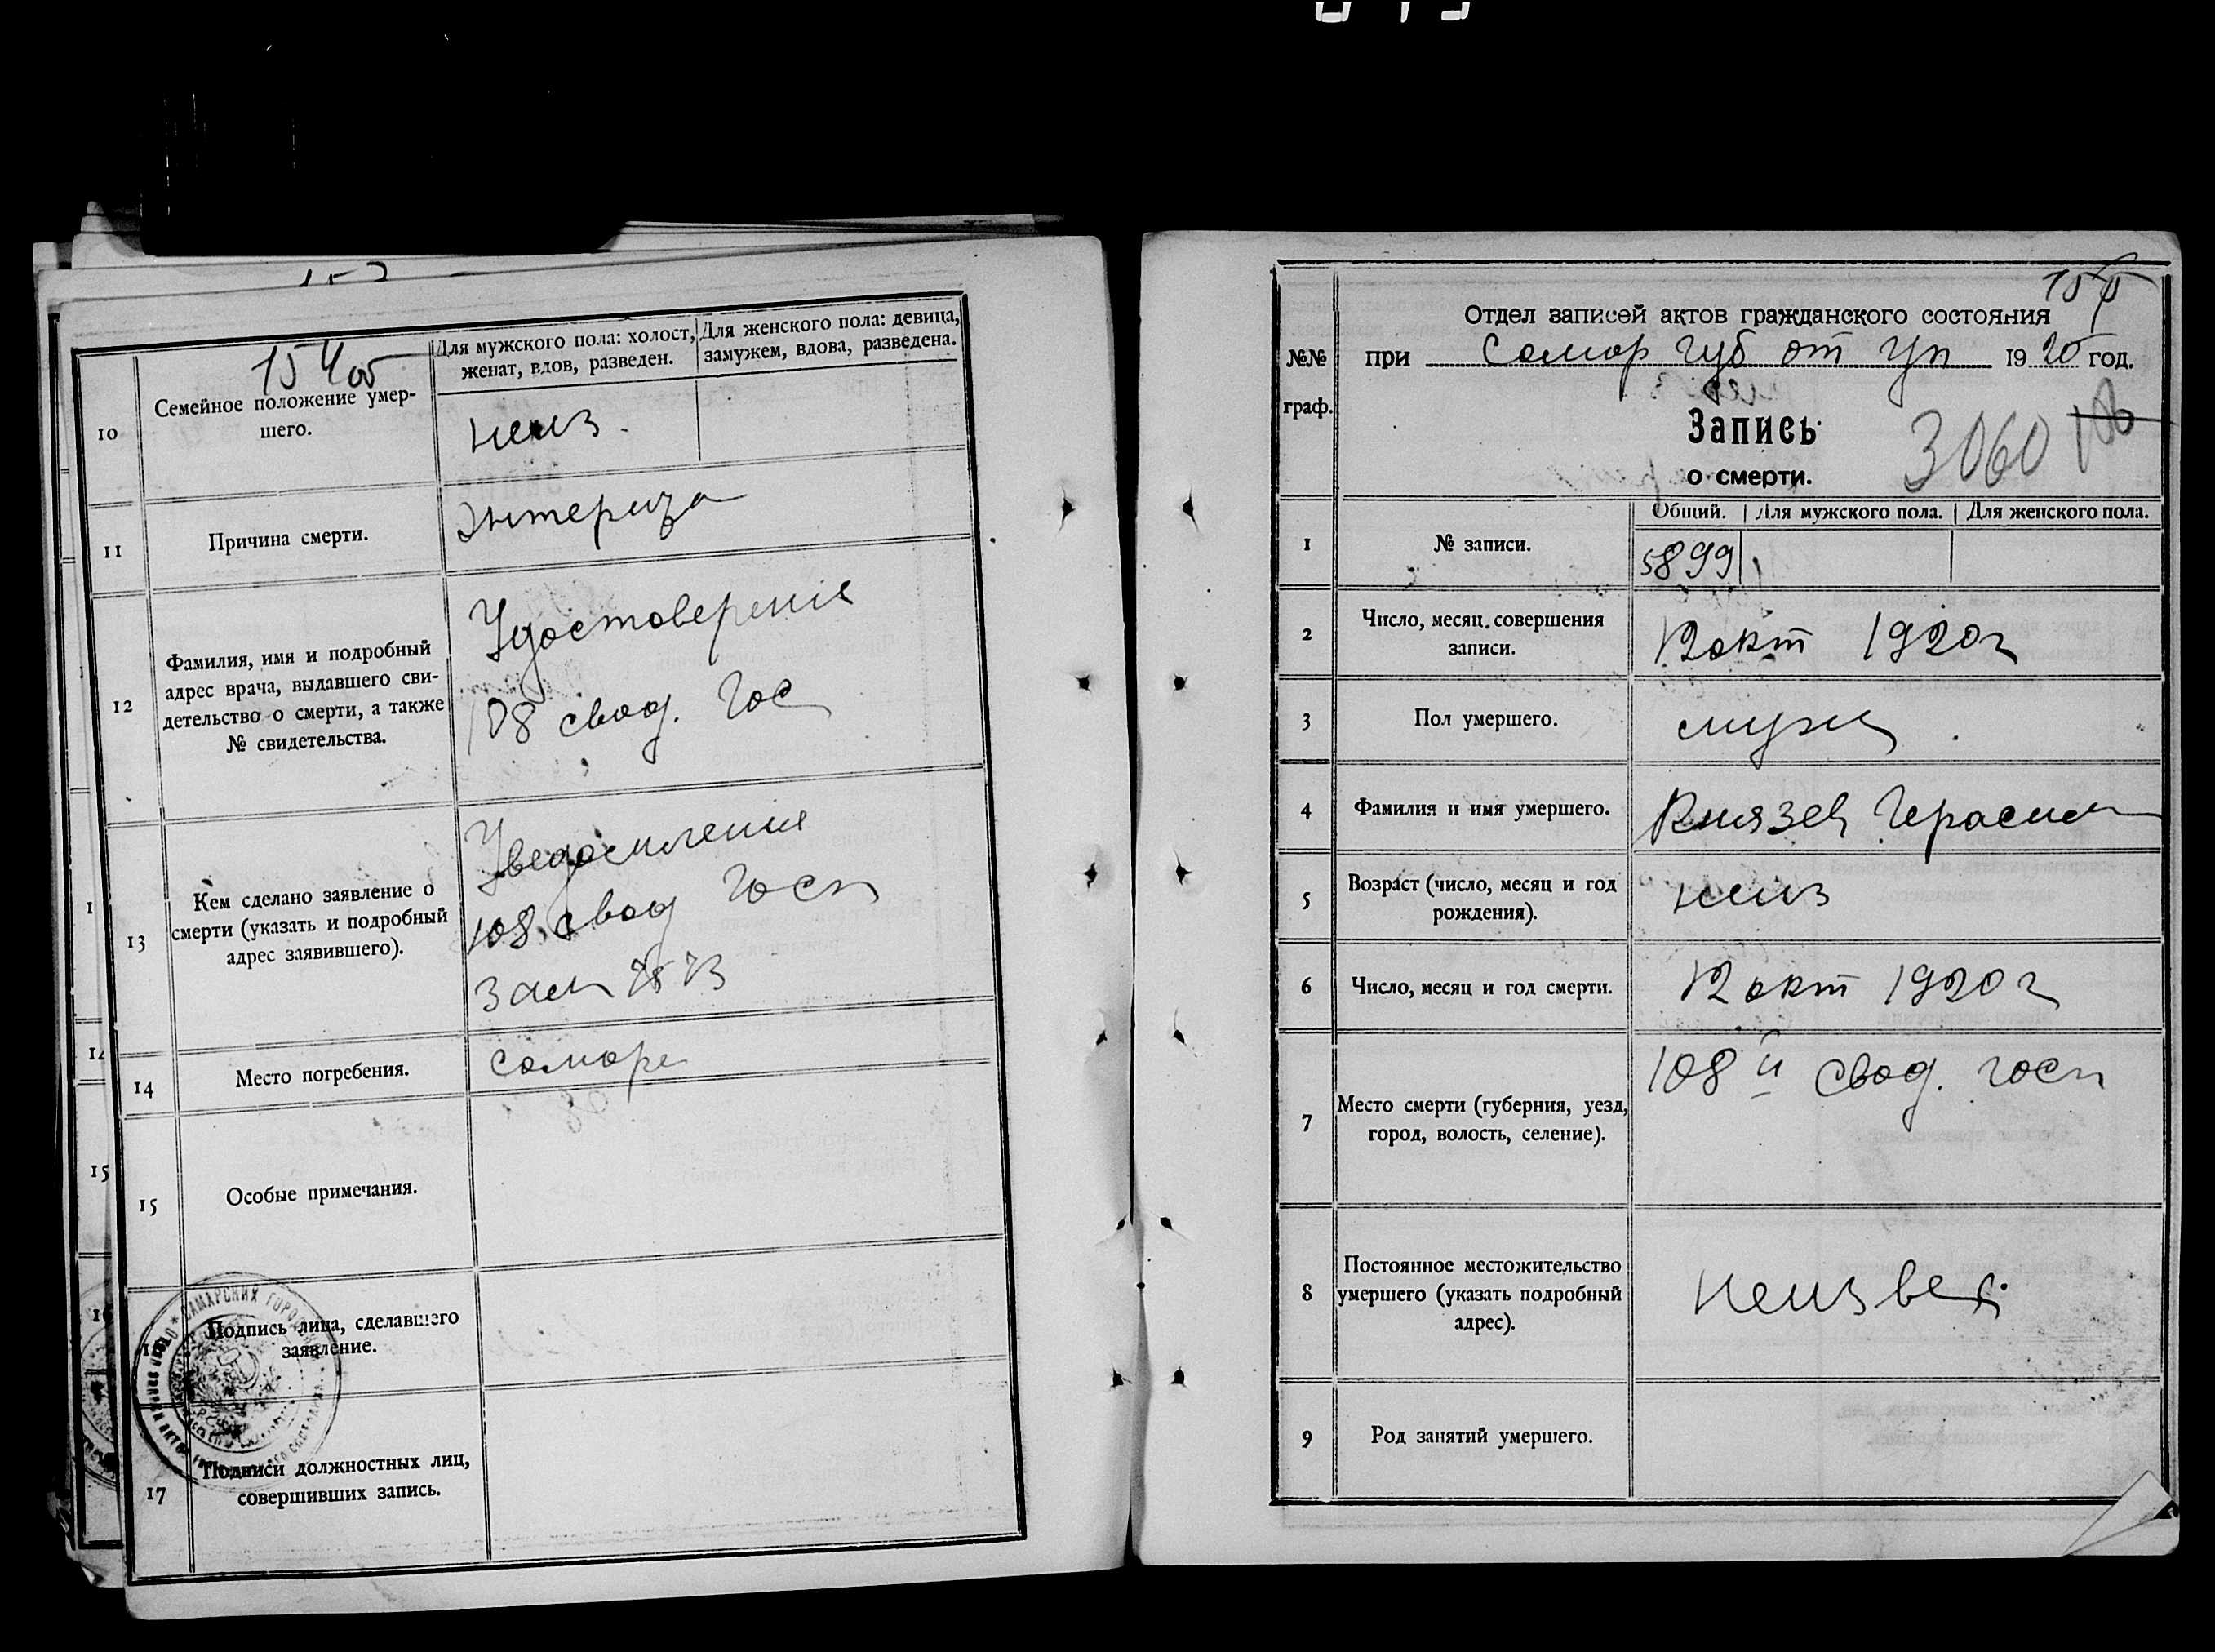 154 об
10
Семейное положение умер-
шего.
Для мужского пола: холост,
женат, вдов, разведен.
Для женского пола: девица,
замужем, вдова, разведена.
неиз.
11
Причина смерти.
Энтерица
12
Фамилия, имя и подробный
адрес врача, выдавшего сви-
детельство о смерти, а также
№ свидетельства.
Удостоверение
108 свод. Гос
13
Кем сделано заявление о
смерти (указать и подробный
адрес заявившего).
Уведомление
108 свод госп
за №
14
Место погребения.
Самаре
15
Особые примечания.
Подпись лица, сделавшего
заявление.
17
Подписи должностных лиц,
совершивших запись.
№№
граф.
155
Отдел записей актов гражданского состояния
при Самар губ от уп 1920 год.
Запись
о смерти.
3060
1
№ записи.
Общий. Для мужского пола. Для женского пола.
5899
2
Число, месяц совершения
записи.
12 окт 1920 г
3
Пол умершего.
муж
4
Фамилия и имя умершего.
Князев Герасим
5
Возраст (число, месяц и год
рождения).
неиз
6
Число, месяц и год смерти.
12 окт 1920 г
7
Место смерти (губерния, уезд,
город, волость, селение).
108й свод. госп
8
Постоянное местожительство
умершего (указать подробный
адрес).
Неизвес.
9
Род занятий умершего.